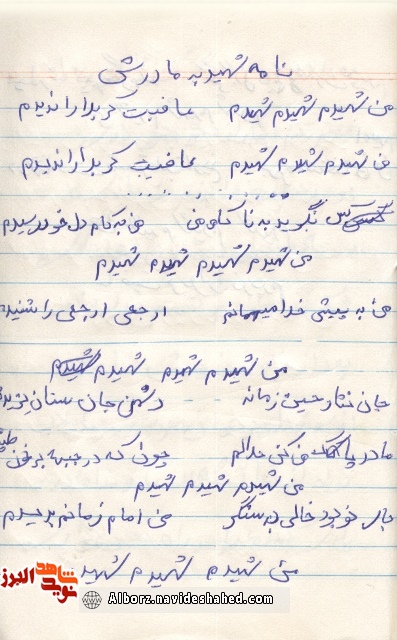 نامه شهید به مادرش
من شهیدم شهیدم شهیدم عاقبت کربلا را ندیدم
من شهیدم شهیدم شهیدم عاقبت کربلا را ندیدم
کس نگرید به ناکامی من به کام دل خود رسیدم
من شهیدم شهیدم شهیدم شهیدم
من به پیش خدا میهمانم ارجعی ارجعی را شنیدم
من شهیدم شهیدم شهیدم شهیدم
جان نثار حسین زمانه دشمن جان ستان
مادر پاک من کن حلالم چون که در جبهه در خون
من شهیدم شهیدم شهیدم
جای خود خالی به سنگر من امام زمانم بدیدم
من شهیدم شهیدم شهید
شاهد نوید البرز
Alborz.navideshahed.com